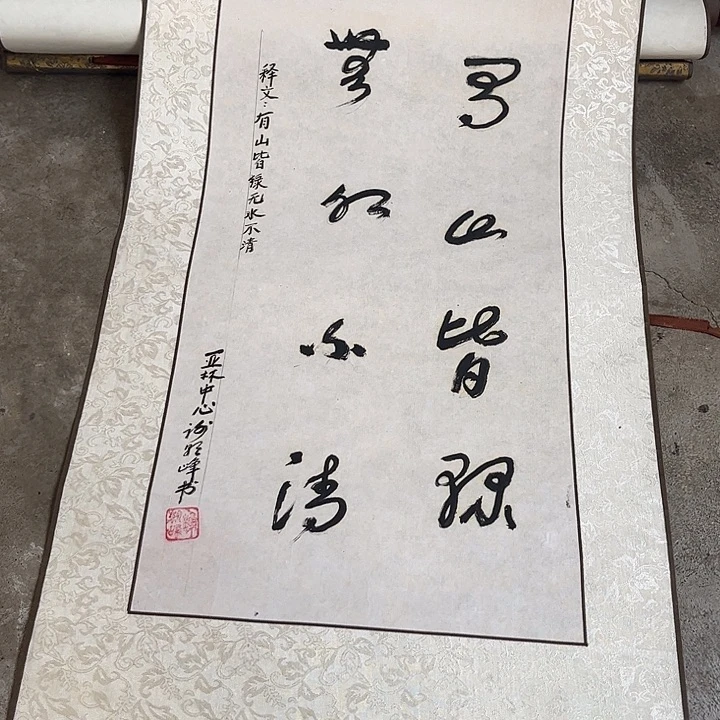 有山皆绿
無水不清
释文：有山皆绿无水不清
亚林中心谢 峰书